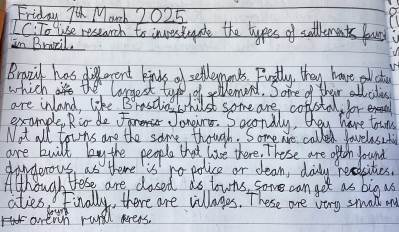 Friday 7th March 2025
LC: To use research to investigate the types of settlements found
in Brazil.
Brazil has different kinds of settlements. Firstly, they have cities
which are the largest type of settlement. Some of their cities
are inland, like Brasilia, whilst some are coastal, for
example, Rio de Janeiro. Secondly, they have towns.
Not all towns are the same, though. Some are called favelas which
are built by the people that live there. These are often found
dangerous, as there is no police or clean, daily necesities.
Although these are classed as towns, some can get as big as
cities. Finally, there are villages. These are very small and
are found in rural areas.